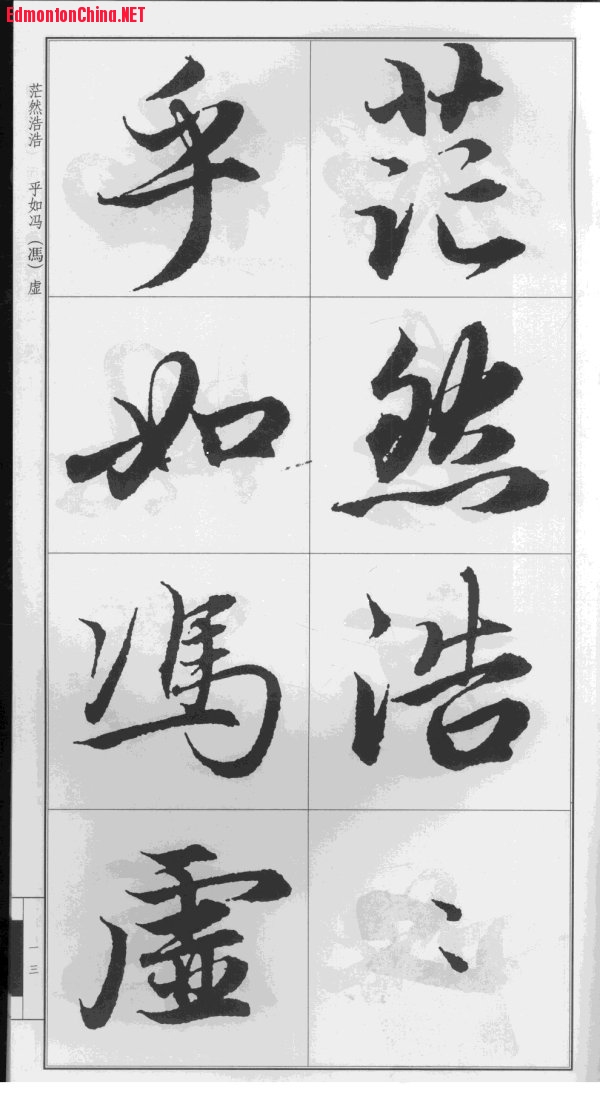 EdmontonChina.NET
茫然浩浩 乎如冯（馮）虚
茫然浩〻
乎如馮虚
一三